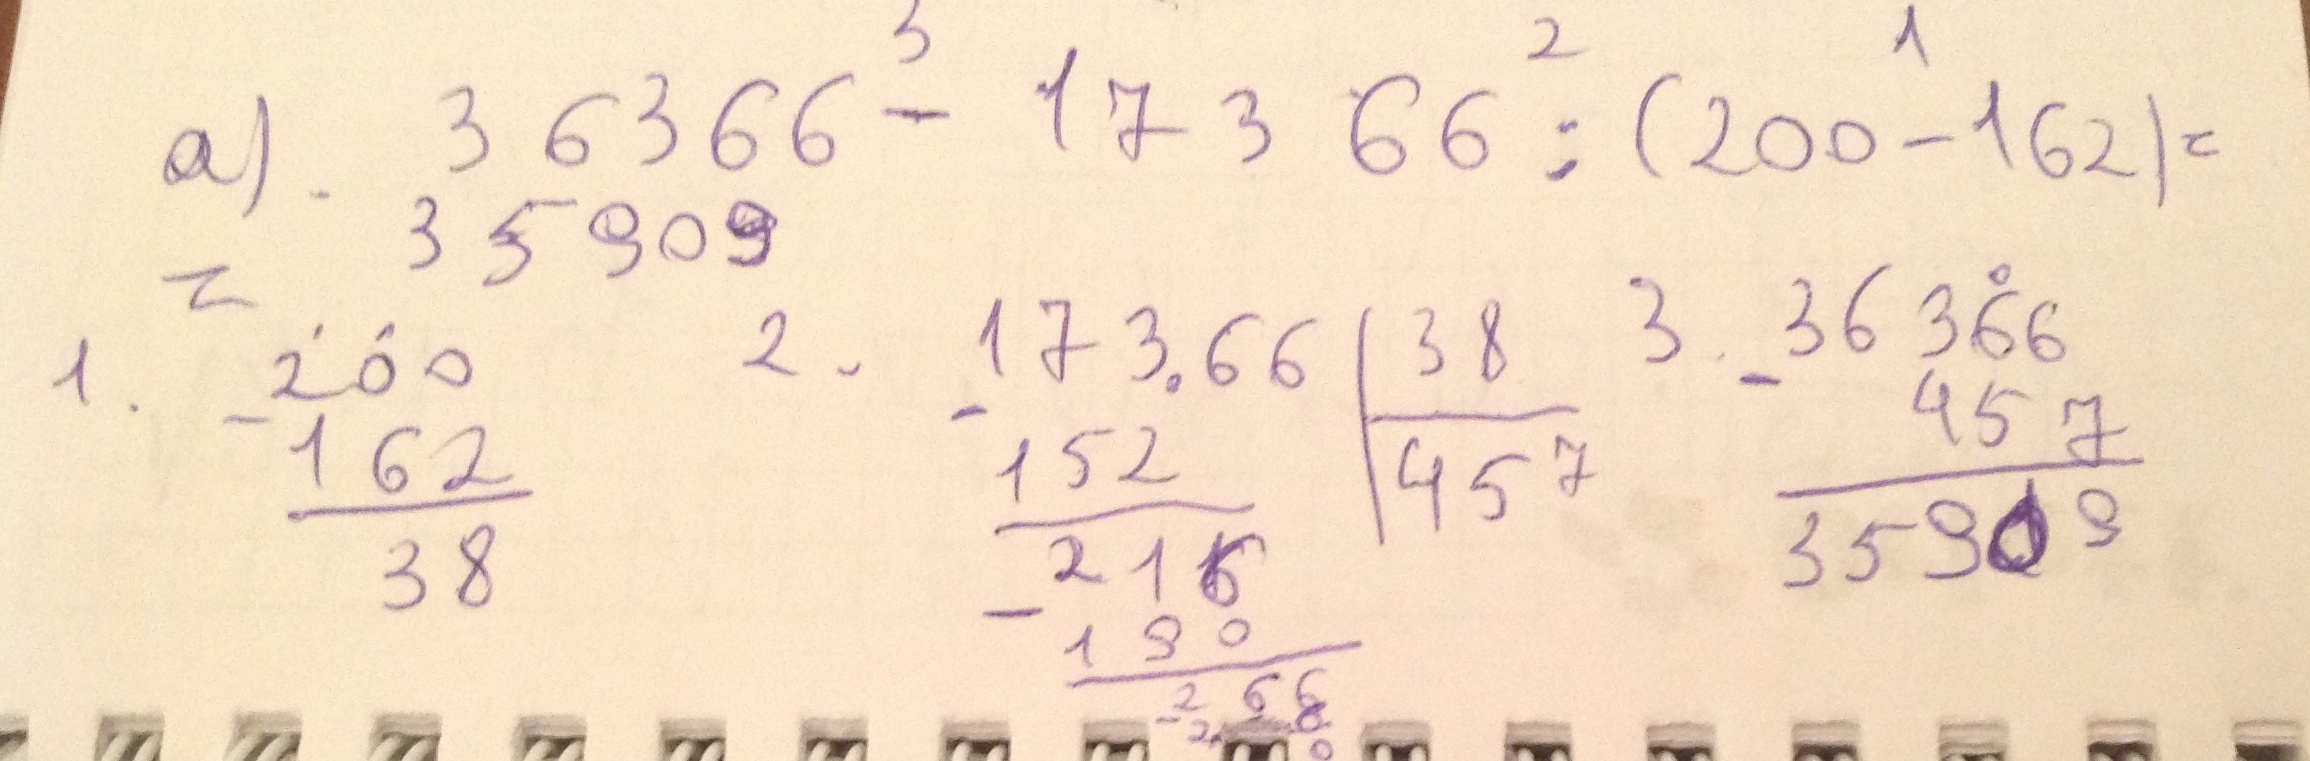 3 2 1
а). 36366 - 17366 : (200 - 162) =
= 35909
1. 200
- 162
38
2. 17366 | 38
- 152 | 457
216
- 190
266
- 266
0
3. 36366
- 457
35909